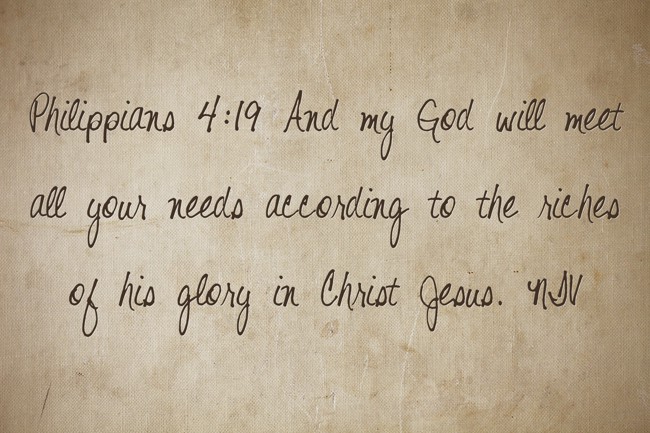 Philippians 4:19 And my God will meet
all your needs according to the riches
of his glory in Christ Jesus. NIV